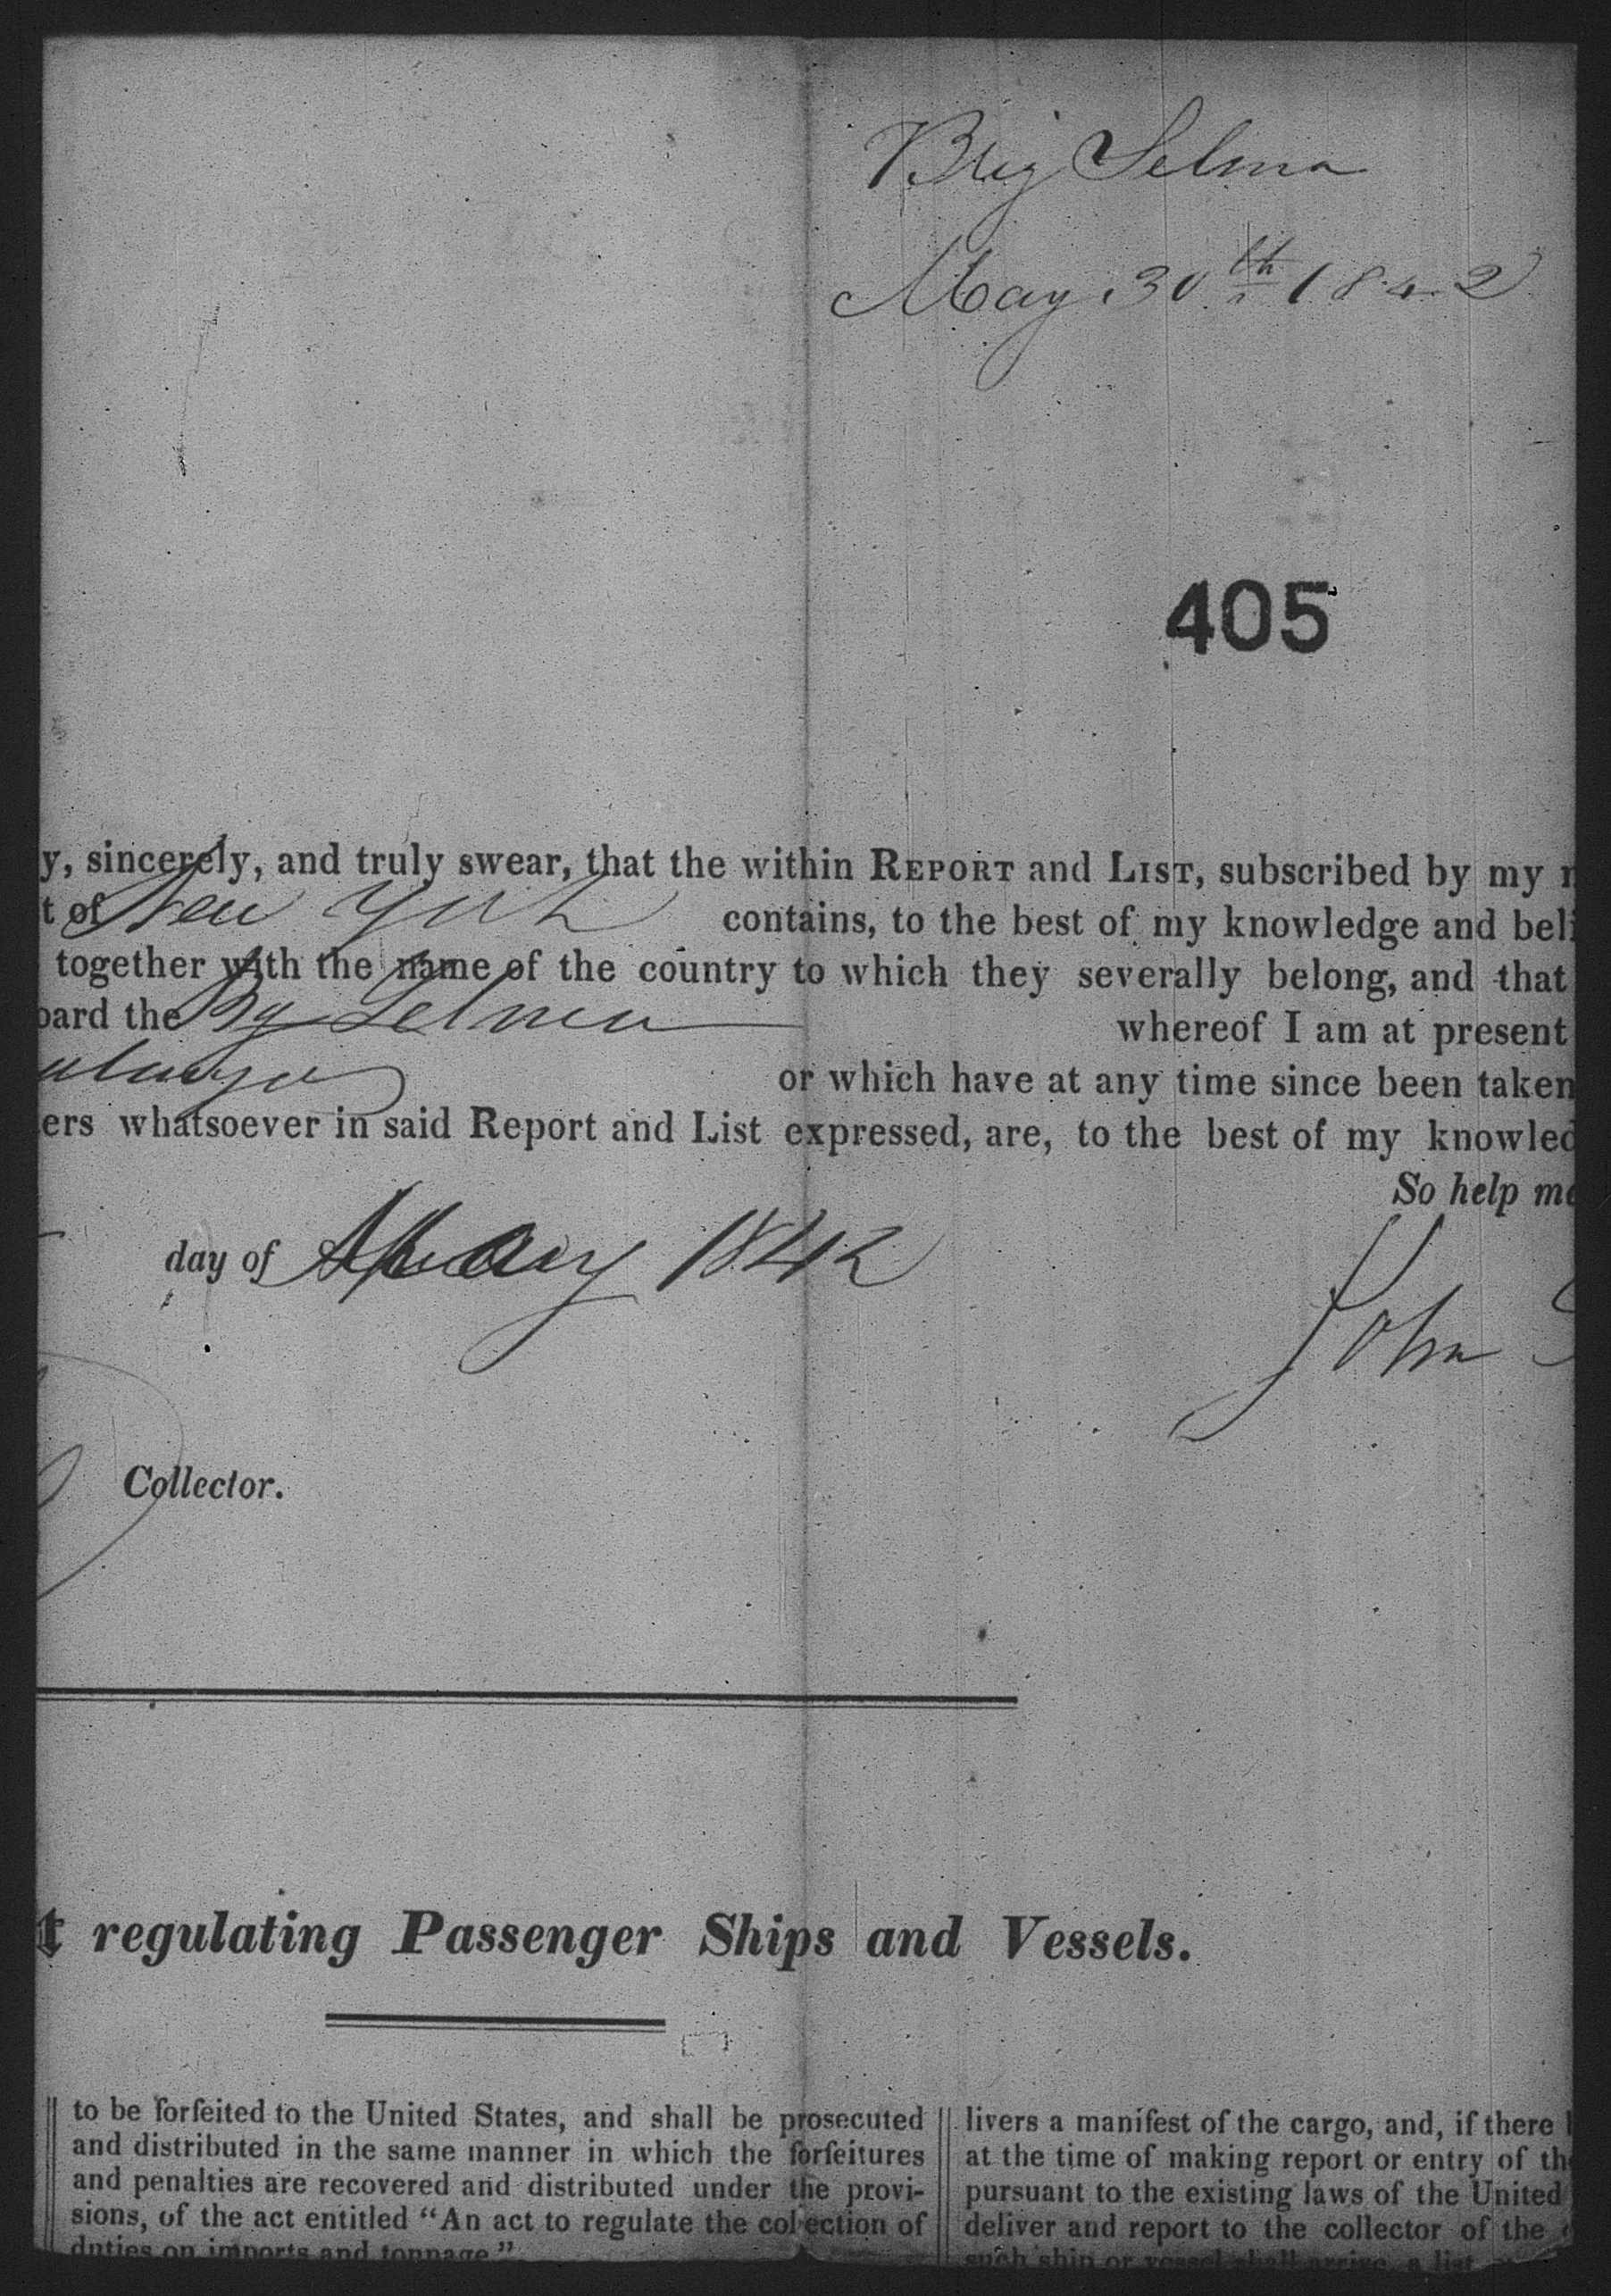 Brig Selma
May 30th 1842
405
y, sincerely, and truly swear, that the within REPORT and LIST, subscribed by my
t of New York contains, to the best of my knowledge and beli
together with the name of the country to which they severally belong, and that
oard the Bg Selma whereof I am at present
or which have at any time since been taken
ers whatsoever in said Report and List expressed, are, to the best of my knowled
So help me
day of May 1842
John
Collector.
t regulating Passenger Ships and Vessels.
to be forfeited to the United States, and shall be prosecuted
and distributed in the same manner in which the forfeitures
and penalties are recovered and distributed under the provi-
sions, of the act entitled "An act to regulate the collection of
duties on imports and tonnage."
livers a manifest of the cargo, and, if there
at the time of making report or entry of the
pursuant to the existing laws of the United
deliver and report to the collector of the
such ship or vessel shall arrive, a list